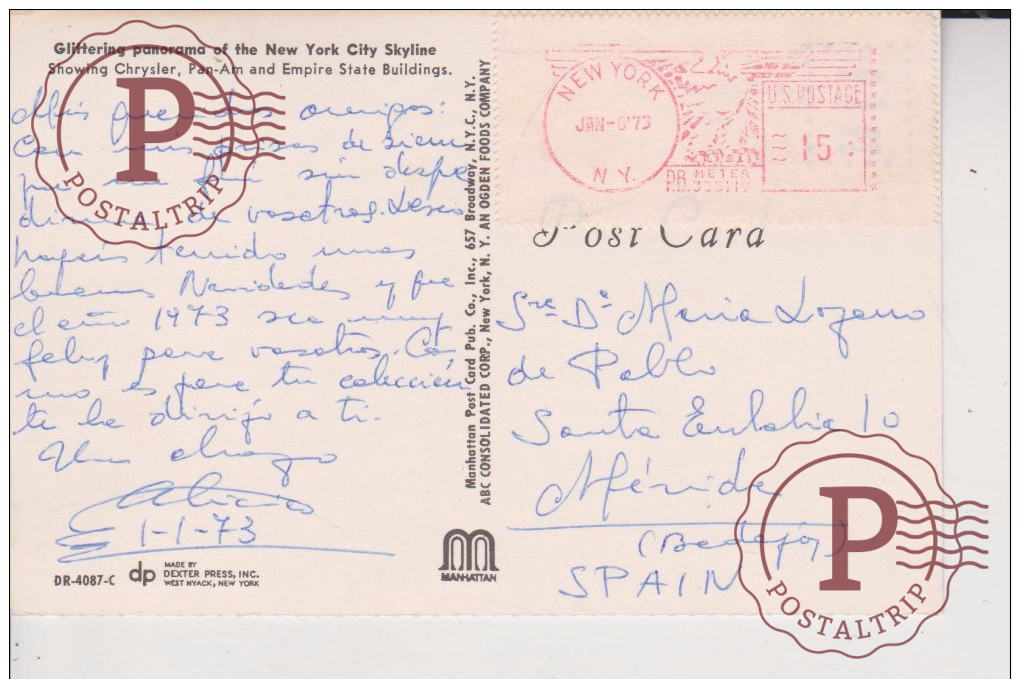 Glittering panorama of the New York City Skyline
Showing Chrysler, Pan-Am and Empire State Buildings.
Mis queridos amigos:
Con mis prisas de siem
pre me fui sin despe
dirme de vosotros. Deseo
hayais tenido unas
buenas Navidades y que
el año 1973 sea muy
feliz para vosotros. Co
mo es para tu colección
te la dirijo a ti.
Un abrazo
Alicia
1-1-73
DR-4087-C
dp
MADE BY
DEXTER PRESS, INC.
WEST NYACK, NEW YORK
Manhattan Post Card Pub. Co., Inc., 657 Broadway, N.Y.C., N.Y.
ABC CONSOLIDATED CORP., New York, N. Y. AN OGDEN FOODS COMPANY
MANHATTAN
NEW YORK
JAN-6'73
N Y.
U.S. POSTAGE
15
P.B. METER
Post Card
Sra Dª Maria Lozano
de Pablo
Santa Eulalia 10
Mérida
(Badajoz)
SPAIN
P
POSTALTRIP
P
POSTALTRIP